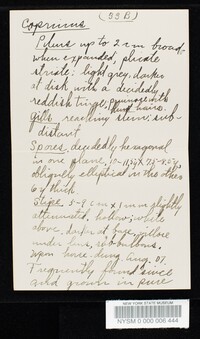 Coprinus (53 B)
Pileus up to 2 cm broad
when expanded, plicate
striate; light grey, darker
at disk with a decidedly
reddish tinge; pruinose with
short hairs.
Gills reaching stem; sub-
distant.
Spores decidedly hexagonal
in one plane, 10-11.5 X 7.5-8.5µ,
obliquely elliptical in the other
6µ thick.
Stipe 5-9 cm x 1 mm slightly
attenuated, hollow; white
above, darker at base, pillose
under lens, sub-bulbous.
Upon horse dung Aug. 07.
Frequently found since
and grown in pure
NEW YORK STATE MUSEUM
NYSM 0 000,006,444